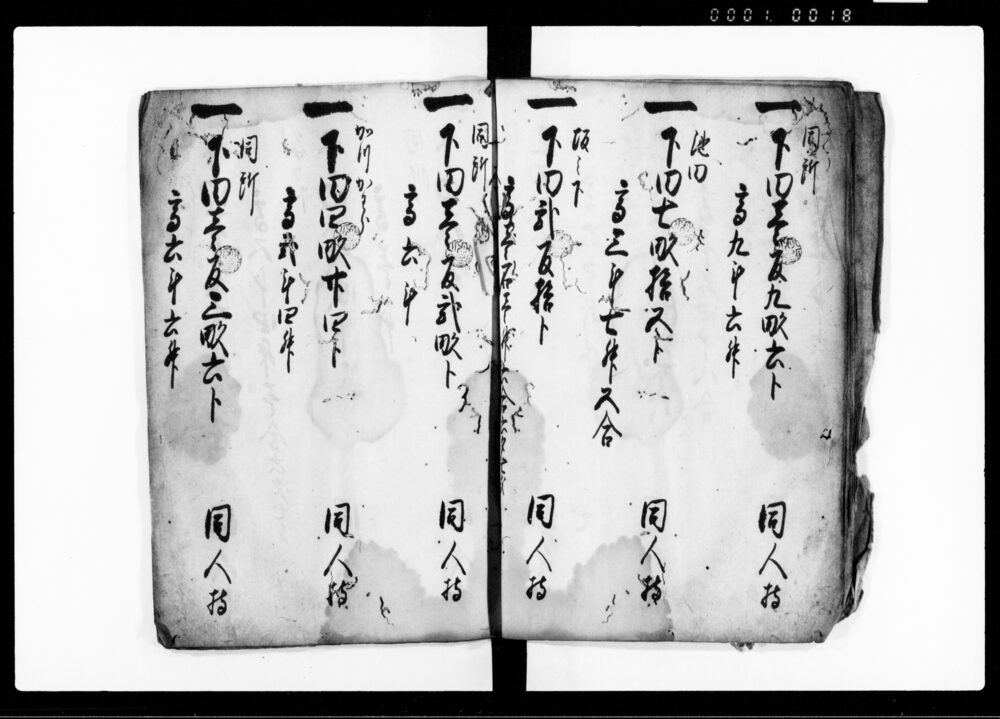 0001. 0018
同所
一 下田壱反九畝六歩 同人持
高九斗六升
池内
一 下田七畝拾五歩 同人持
高三斗七升五合
坂之下
一 下田弐反拾歩 同人持
高壱石壱升六合六夕
同所
一 下田壱反弐畝歩 同人持
高六斗
一 下田四畝廿四歩 同人持
高弐斗四升
同所
一 下田壱反三畝六歩 同人持
高六斗六升